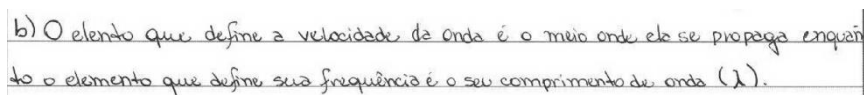 b) O elento que define a velocidade da onda é o meio onde ela se propaga enquan
to o elemento que define sua frequência é o seu comprimento de onda (λ).